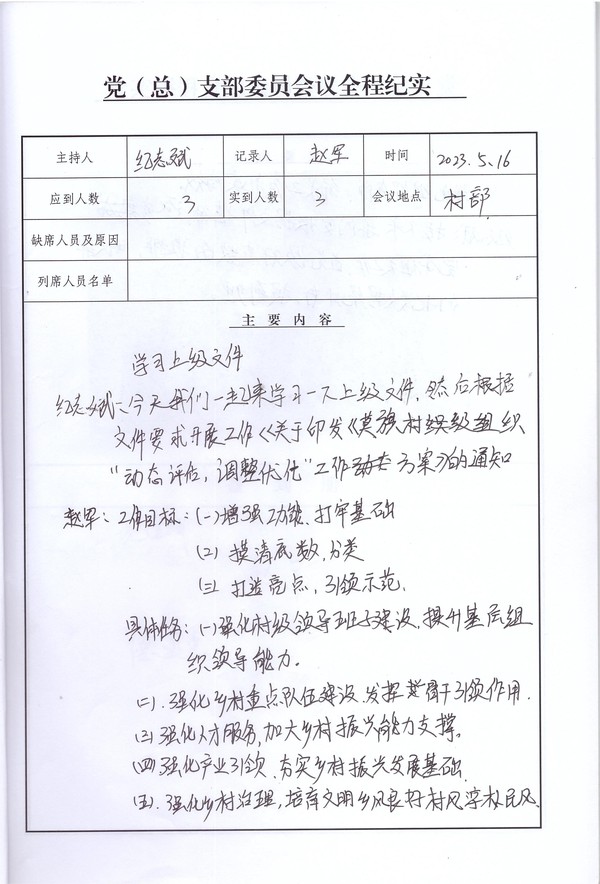 党（总）支部委员会议全程纪实
主持人 纪志斌 记录人 赵军 时间 2023.5.16
应到人数 3 实到人数 3 会议地点 村部
缺席人员及原因
列席人员名单
主 要 内 容
学习上级文件
纪志斌：今天我们一起来学习一下上级文件，然后根据
文件要求开展工作《关于印发《莫旗村级组织
“动态评估，调整优化”工作方案》的通知
赵军：工作目标：(一)增强功能，打牢基础
(二) 摸清底数，分类
(三) 打造亮点，引领示范.
具体任务：(一)强化村级领导班子建设，提升基层组
织领导能力.
(二). 强化乡村重点队伍建设，发挥骨干引领作用.
(三) 强化人才服务，加大乡村振兴能力支撑。
(四) 强化产业引领，夯实乡村振兴发展基础.
(五). 强化乡村治理，培育文明乡风良好村风淳朴民风.